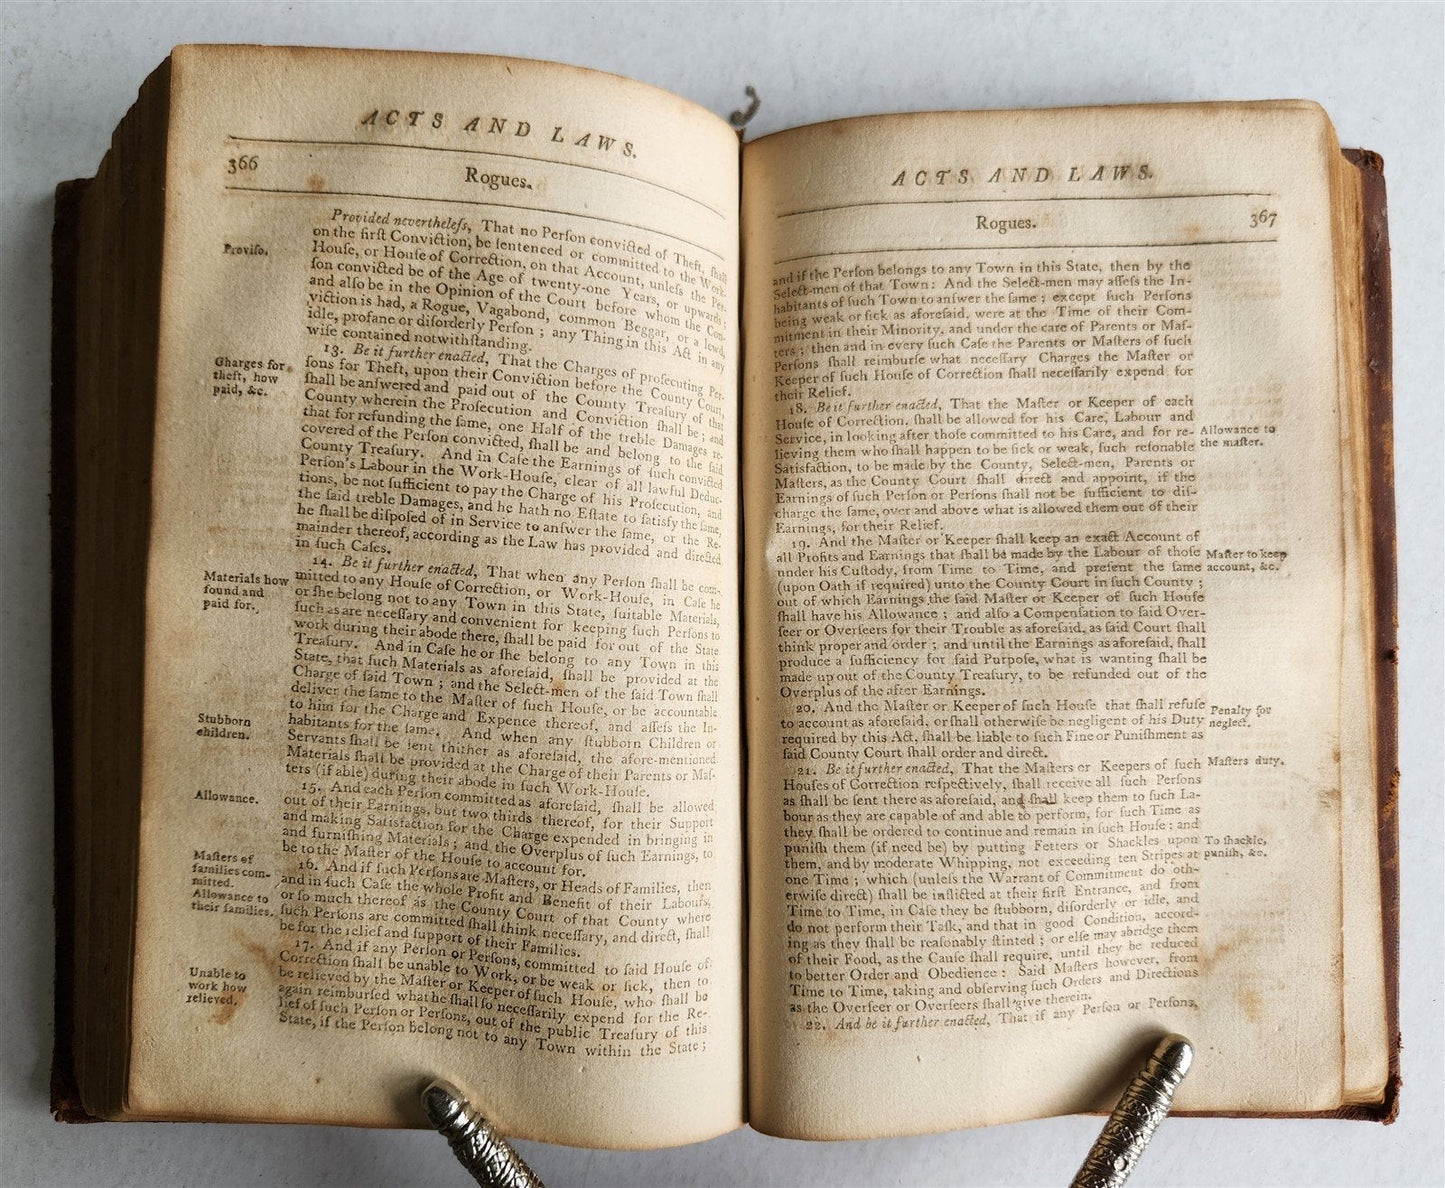 ACTS AND LAWS.
366
Rogues.
Proviso.
Provided nevertheleſs, That no Perſon convicted of Theft, ſhall
on the firſt Conviction, be ſentenced or committed to the Work-
Houſe, or Houſe of Correction, on that Account, unleſs the Per-
ſon convicted be of the Age of twenty-one Years, or upwards;
and alſo be in the Opinion of the Court before whom the Con-
viction is had, a Rogue, Vagabond, common Beggar, or a lewd,
idle, profane or diſorderly Perſon; any Thing in this Act in any
wiſe contained notwithſtanding.
Charges for
theft, how
paid, &c.
13. Be it further enacted, That the Charges of proſecuting Per-
ſons for Theft, upon their Conviction before the County Court,
ſhall be anſwered and paid out of the County Treaſury of that
County wherein the Proſecution and Conviction ſhall be; and
that for refunding the ſame, one Half of the treble Damages re-
covered of the Perſon convicted, ſhall be and belong to the ſaid
County Treaſury. And in Caſe the Earnings of ſuch convicted
Perſon's Labour in the Work-Houſe, clear of all lawful Deduc-
tions, be not ſufficient to pay the Charge of his Proſecution, and
the ſaid treble Damages, and he hath no Eſtate to ſatisfy the ſame,
he ſhall be diſpoſed of in Service to anſwer the ſame, or the Re-
mainder thereof, according as the Law has provided and directed
in ſuch Caſes.
Materials how
found and
paid for.
14. Be it further enacted, That when any Perſon ſhall be com-
mitted to any Houſe of Correction, or Work-Houſe, in Caſe he
or ſhe belong not to any Town in this State, ſuitable Materials,
ſuch as are neceſſary and convenient for keeping ſuch Perſons to
work during their abode there, ſhall be paid for out of the State
Treaſury. And in Caſe he or ſhe belong to any Town in this
State, that ſuch Materials as aforeſaid, ſhall be provided at the
Charge of ſaid Town; and the Select-men of the ſaid Town ſhall
deliver the ſame to the Maſter of ſuch Houſe, or be accountable
to him for the Charge and Expence thereof, and aſſeſs the In-
habitants for the ſame. And when any ſtubborn Children or
Servants ſhall be ſent thither as aforeſaid, the afore-mentioned
Materials ſhall be provided at the Charge of their Parents or Maſ-
ters (if able) during their abode in ſuch Work-Houſe.
Stubborn
children.
Allowance.
15. And each Perſon committed as aforeſaid, ſhall be allowed
out of their Earnings, but two thirds thereof, for their Support
and making Satisfaction for the Charge expended in bringing in
and furniſhing Materials; and the Overplus of ſuch Earnings, to
be to the Maſter of the Houſe to account for.
Maſters of
families com-
mitted.
Allowance to
their families.
16. And if ſuch Perſons are Maſters, or Heads of Families, then
and in ſuch Caſe the whole Profit and Benefit of their Labours,
or ſo much thereof as the County Court of that County where
ſuch Perſons are committed ſhall think neceſſary, and direct, ſhall
be for the relief and ſupport of their Families.
Unable to
work how
relieved.
17. And if any Perſon or Perſons, committed to ſaid Houſe of
Correction ſhall be unable to Work, or be weak or ſick, then to
be relieved by the Maſter or Keeper of ſuch Houſe, who ſhall be
again reimburſed what he ſhall ſo neceſſarily expend for the Re-
lief of ſuch Perſon or Perſons, out of the public Treaſury of this
State, if the Perſon belong not to any Town within the State;
ACTS AND LAWS.
Rogues.
367
and if the Perſon belongs to any Town in this State, then by the
Select-men of that Town: And the Select-men may aſſeſs the In-
habitants of ſuch Town to anſwer the ſame; except ſuch Perſons
being weak or ſick as aforeſaid, were at the Time of their Com-
mitment in their Minority, and under the care of Parents or Maſ-
ters; then and in every ſuch Caſe the Parents or Maſters of ſuch
Perſons ſhall reimburſe what neceſſary Charges the Maſter or
Keeper of ſuch Houſe of Correction ſhall neceſſarily expend for
their Relief.
18. Be it further enacted, That the Maſter or Keeper of each
Houſe of Correction, ſhall be allowed for his Care, Labour and
Service, in looking after thoſe committed to his Care, and for re-
lieving them who ſhall happen to be ſick or weak, ſuch reſonable
Satisfaction, to be made by the County, Select-men, Parents or
Maſters, as the County Court ſhall direct and appoint, if the
Earnings of ſuch Perſon or Perſons ſhall not be ſufficient to diſ-
charge the ſame, over and above what is allowed them out of their
Earnings, for their Relief.
Allowance to
the maſter.
19. And the Maſter or Keeper ſhall keep an exact Account of
all Profits and Earnings that ſhall be made by the Labour of thoſe
under his Cuſtody, from Time to Time, and preſent the ſame
(upon Oath if required) unto the County Court in ſuch County;
out of which Earnings the ſaid Maſter or Keeper of ſuch Houſe
ſhall have his Allowance; and alſo a Compenſation to ſaid Over-
ſeer or Overſeers for their Trouble as aforeſaid, as ſaid Court ſhall
think proper and order; and until the Earnings as aforeſaid, ſhall
produce a ſufficiency for ſaid Purpoſe, what is wanting ſhall be
made up out of the County Treaſury, to be refunded out of the
Overplus of the after Earnings.
Maſter to keep
account, &c.
20. And the Maſter or Keeper of ſuch Houſe that ſhall refuſe
to account as aforeſaid, or ſhall otherwiſe be negligent of his Duty
required by this Act, ſhall be liable to ſuch Fine or Puniſhment as
ſaid County Court ſhall order and direct.
Penalty for
neglect.
21. Be it further enacted, That the Maſters or Keepers of ſuch
Houſes of Correction reſpectively, ſhall receive all ſuch Perſons
as ſhall be ſent there as aforeſaid, and ſhall keep them to ſuch La-
bour as they are capable of and able to perform, for ſuch Time as
they ſhall be ordered to continue and remain in ſuch Houſe: and
puniſh them (if need be) by putting Fetters or Shackles upon
them, and by moderate Whipping, not exceeding ten Stripes at
one Time; which (unleſs the Warrant of Commitment do oth-
erwiſe direct) ſhall be inflicted at their firſt Entrance, and from
Time to Time, in Caſe they be ſtubborn, diſorderly or idle, and
do not perform their Taſk, and that in good Condition, accord-
ing as they ſhall be reaſonably ſtinted; or elſe may abridge them
of their Food, as the Cauſe ſhall require, until they be reduced
to better Order and Obedience: Said Maſters however, from
Time to Time, taking and obſerving ſuch Orders and Directions
as the Overſeer or Overſeers ſhall give therein.
Maſters duty.
To ſhackle,
puniſh, &c.
22. And be it further enacted, That if any Perſon or Perſons,